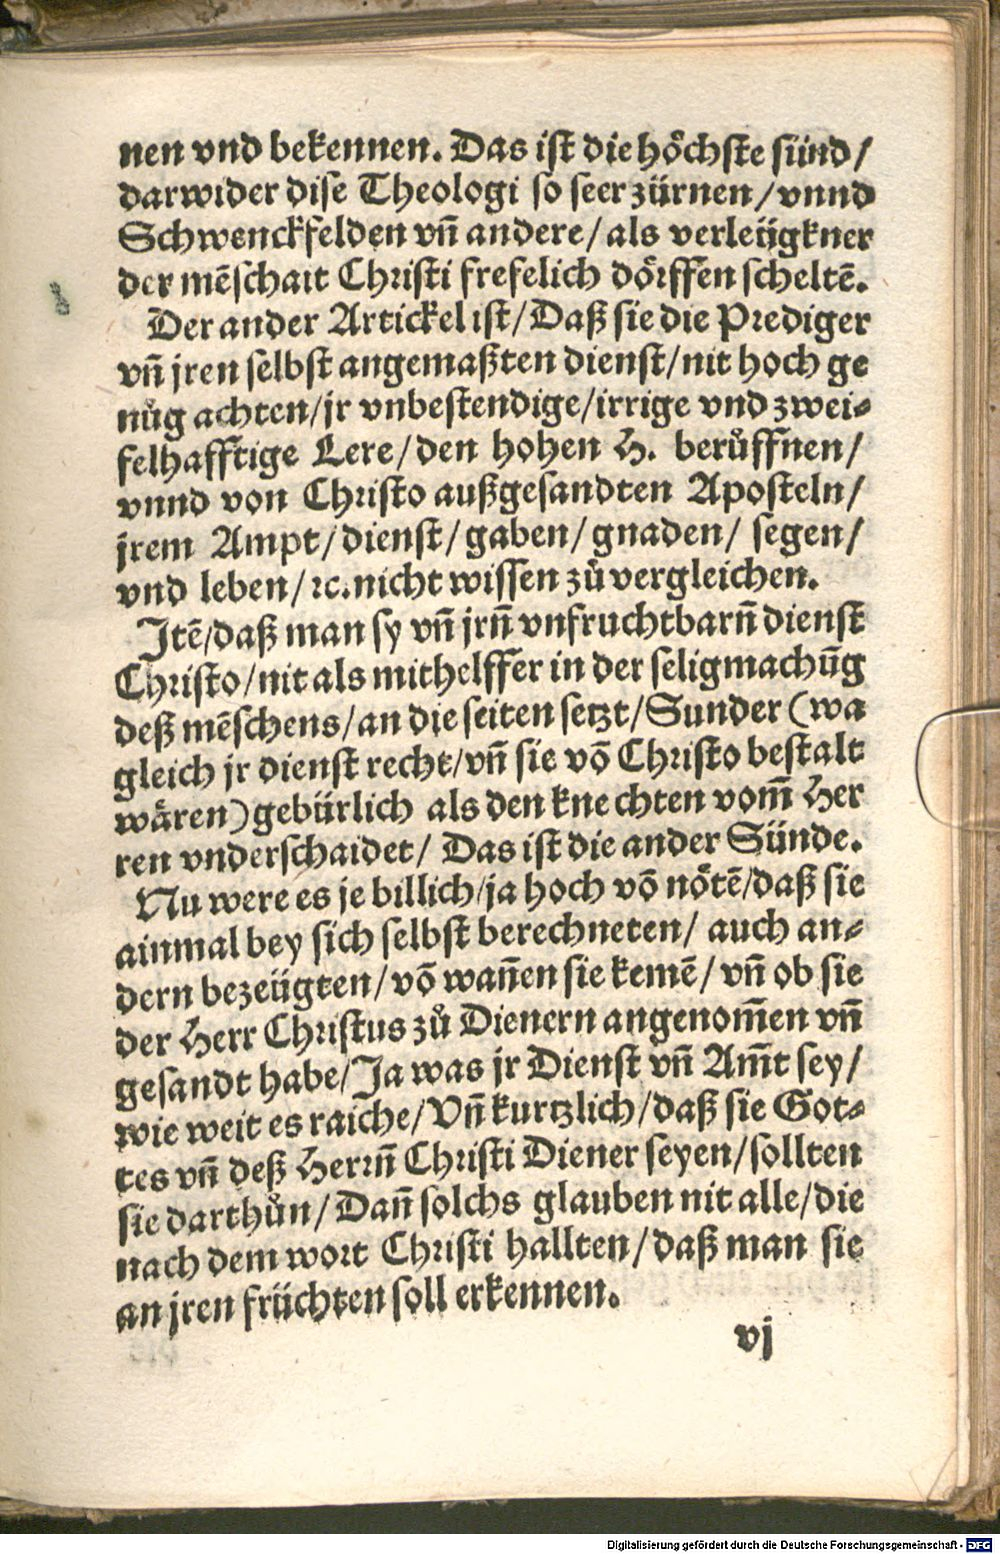 nen vnd bekennen. Das ist die höchste sünd/
darwider dise Theologi so seer zürnen/vnnd
Schwenckfelden vn̄ andere/als verleügkner
der mēschait Christi frefelich dörffen scheltē.
Der ander Artickel ist/Daß sie die Prediger
vn̄ jren selbst angemaßten dienst/nit hoch ge
nůg achten/jr vnbestendige/irrige vnd zwei-
felhafftige Lere/den hohen H. berůffnen/
vnnd von Christo außgesandten Aposteln/
jrem Ampt/dienst/gaben/gnaden/ segen/
vnd leben/ꝛc.nicht wissen zů vergleichen.
Jtē/daß man sy vn̄ jrn̄ vnfruchtbarn̄ dienst
Christo/nit als mithelffer in der seligmachūg
deß mēschens/an die seiten setzt/Sunder (wa
gleich jr dienst recht/vn̄ sie vō Christo bestalt
wären) gebürlich als den knechten vom̄ Her
ren vnderschaidet/ Das ist die ander Sünde.
Nu were es je billich/ja hoch vō nötē/daß sie
ainmal bey sich selbst berechneten/ auch an-
dern bezeügten/vō wan̄en sie kemē/vn̄ ob sie
der Herr Christus zů Dienern angenom̄en vn̄
gesandt habe/Ja was jr Dienst vn̄ Am̄t sey/
wie weit es raiche/Vn̄ kurtzlich/daß sie Got-
tes vn̄ deß Herrn̄ Christi Diener seyen/sollten
sie darthůn/Dan̄ solchs glauben nit alle/die
nach dem wort Christi hallten/daß man sie
an jren früchten soll erkennen.
vj
Digitalisierung gefördert durch die Deutsche Forschungsgemeinschaft - DFG